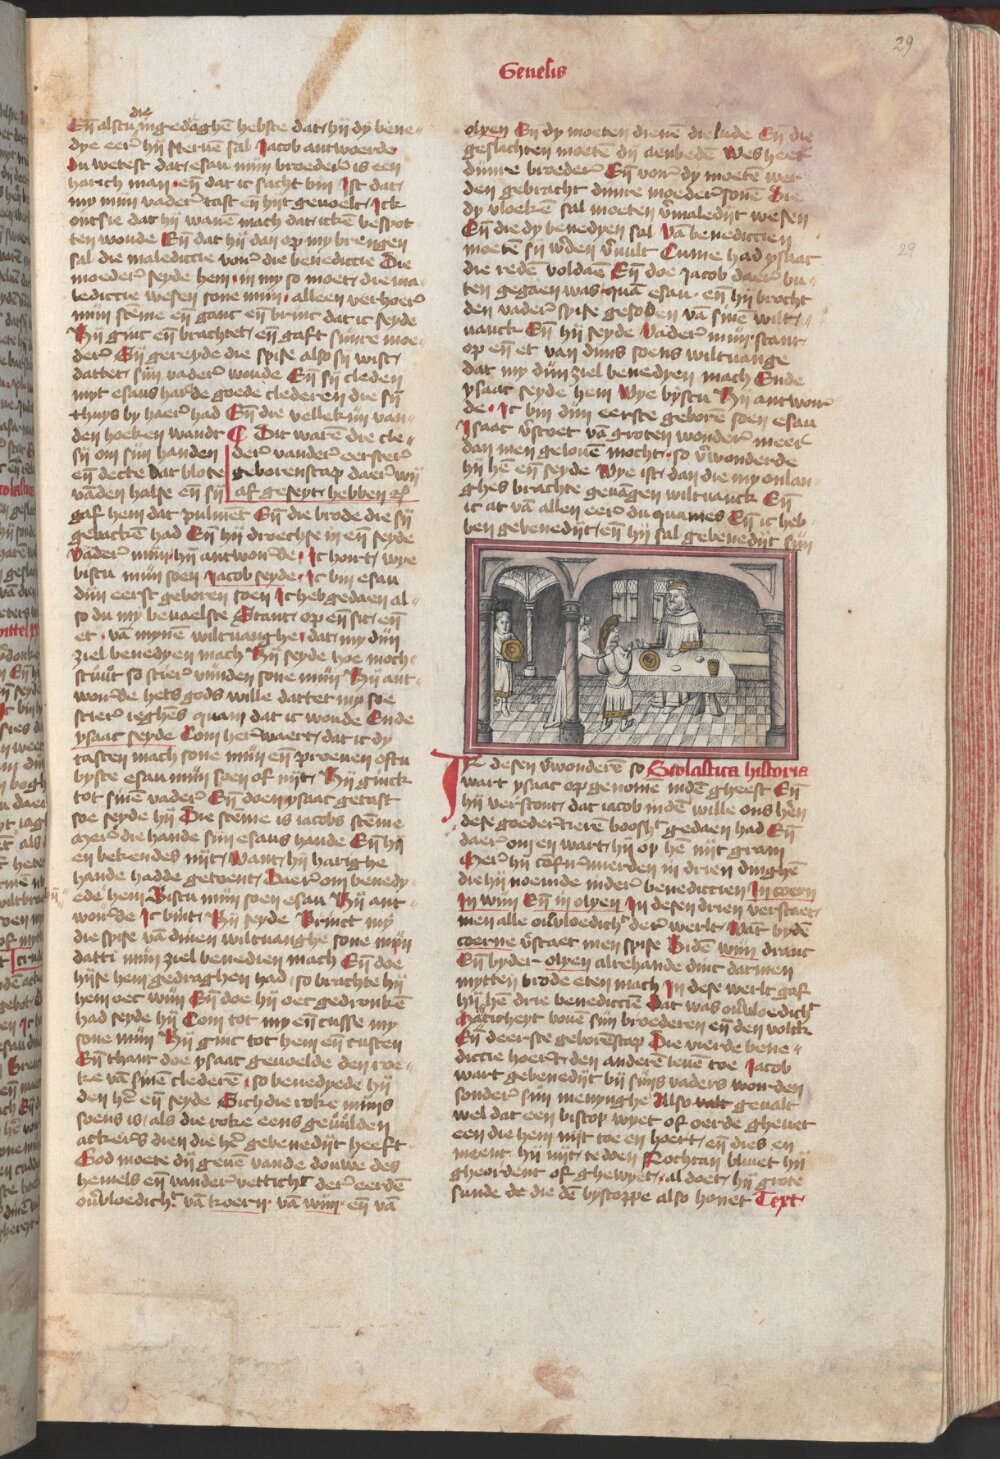 29
Genesis
die
Eñ alstu ingedaghē hebste dat hij dy bene
dye eer hij steruē sal Jacob antwoerde
du wetest dat esau mijn broeder is een
harich man eñ dat ic sacht bin Ist dat
my mijn vader tast eñ hijt geuoelt Ick
ontsie dat hij wanē mach dat ickē bespot
ten woude Eñ dat hij dan op my brengen
sal die maledictie voer die benedictie Die
moeder seyde hem in my so moet die ma
ledictie wesen sone mijn alleen verhoer
mijn stēme eñ ganc eñ brinc dat ic seyde
Hij ginc eñ brachtet eñ gaft sijnre moe
der Eñ gereyde die spise also sij wist
dattet sijn vader woude Eñ sij cleden
myt esaus harde goede clederen die sij
thuys by haer had Eñ die vellekijn van
den hoeken wandt
sij om sijn handen
eñ decte dat blote
vādен halse eñ sij
Dit warē die cle
der vander eerster
geborenscap daer wij
af geseyt hebben
gaf hem dat pulmēt Eñ die brode die sij
gebackē had Eñ hij droechse in eñ seyde
Vader mijn hij antwoerde Ic hoert wye
bistu mijn soen Jacob seyde Ic bin esau
dijn eerst geboren soen Ic heb gedaen al
so du my beuaelste Stant op eñ sit eñ
et vā myne wiltuanghe dat my dijn
ziel benedyen mach Hij seyde hoe moch
stuut so scier vinden sone mijn Hij ant
woerde hets gods wille dattet my soe
scier ieghēs quam dat ic woude Ende
ysaac seyde Com herwaert dat ic dy
tasten mach sone mijn eñ proeuen oftu
byste esau mijn soen of nijt Hij ginck
tot sinē vader Eñ doen ysaac getast
soe seyde hij Die stēme is iacobs stēme
mer die hande sijn esaus hande Eñ hij
en bekendes nijt Want hij harighe
hande hadde getoent Daer om benedy
ede hem Bistu mijn soen esau Hij ant
woerde Ic bint Hij seyde Brinct my
die spise vā dinen wiltuanghe sone mijn
datti mijn ziel benedien mach Eñ doe
hijse hem gedraghen had so brachte hij
hem oec wijn Eñ doe hij oec gedronkē
had seyde hij Com tot my eñ cusse my
sone mijn Hij ginc tot hem eñ custen
Eñ thant doe ysaac geuoelde den roe
ke vā sinē clederē so benedyede hij
den hē eñ seyde Sich die roke mijns
soens is als die roke eens geuulden
ackers dien die hē gebenedijt heeft
God moete dij geuē vande douwe des
hemels eñ vander vetticheit der eerdē
ouvloedich vā koern vā wijn eñ vā
olyen Eñ dy moeten dienē die lude Eñ die
geslachten moetē dij aenbedē Wes heer
dijnre broeder Eñ voer dy moetē wer
den gebracht dijnre moeder sonē Die
dy vloekē sal moeten vmaledijt wesen
Eñ die dy benedyen sal vā benedictien
moetē sij werden vvult Cume had ysaac
die redē voldaē Eñ doe Jacob daer bu
ten gegaen was quā esau eñ hij brocht
den vader spise gesoden vā sine wilt
uanck Eñ hij seyde Vader mijn stant
op eñ et van dijns soens wiltuange
dat my dijn ziel benedyen mach Ende
ysaac seyde hem Wye bystu Hij antwoer
de Ic bin dijn eerste geborē soen esau
Isaac vstoet vā groten wonder meer
dan men gelouē mocht so vwonderde
hij hē eñ seyde Wye ist dan die my onlan
ghes brachte geuāgen wiltuanck Eñ
ic at vā allen eer du quames Eñ ic heb
ben gebenedijt eñ hij sal gebenedijt sijn
In desen vwonderē so Scolastica historia
wart ysaac op genomē indē gheest Eñ
hij verstont dat iacob indē wille ons hēn
dese goedertierē boosheit gedaen had Eñ
daer om en wart hij op hē nijt gram
Mer hij cōfirmeerden in drien dinghē
die hij noemde inder benedictien In coern
In wijn Eñ in olyen In desen drien verstaet
men alle ouvloedich der werlt Wāt bydē
coerne vstaet men spise Bidē wijn dranc
Eñ byder olyen alrehande dinc dat men
mytten brode eten mach In dese werlt gaf
hij hē drie benedictiē Dat was ouvloedich
Haēricheyt bouē sijn broederen eñ den volck
Eñ deerste geborēscap Die vierde bene
dictie hoert den anderē leuē toe Jacob
wart gebenedijt bij sijns vaders worden
sonder sijn menynghe Also valt geualt
wel dat een biscop wyet of oerde gheuet
een die hem nijt toe en hoert eñ dies en
meent hij nijt te doen Nochtan bliuet hij
gheordent of ghewyet al doet hij grote
sunde de die dē byscoppe also honet Text
29